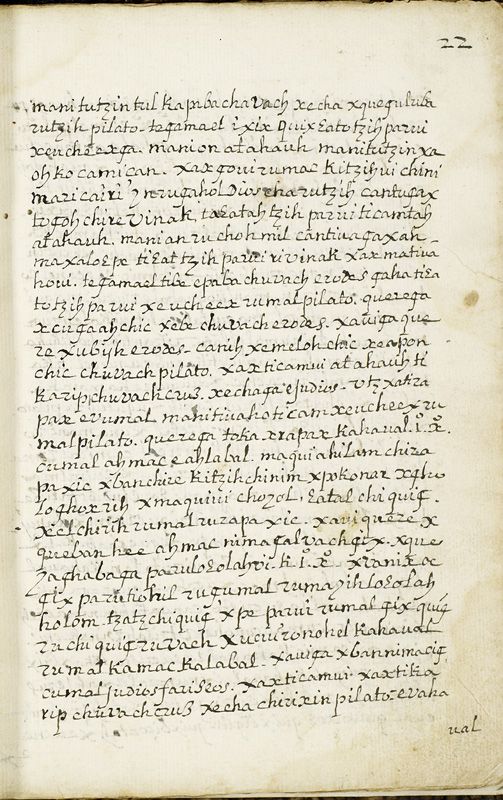 22
manitutzin tul kapabachavach xecha xqueguluba
rutzih pilato. tegamael ixix quixɛatotzih parui
xeucheexga. manion at ahauh manitutzin xa
oh ko camican. xax goui rumac kitzih ui chini
maricairi ynrugahol Dios cha rutzih cantugax
togoh chire Vinak taɛatah tzih parui ticamtah
at ahauh. manian ruchoh mil cantiuagaxan
maxaloɛpe tiɛat tzih parui ri vinak xax matiua
houi. tegamael tibe epaba chuvach erodes gaha tiɛa
totzih parui xeucheex rumal pilato. querega
xcugaahchic xebe chuvach erodes. xauiga que
re xubijh erodes. canih xemeloh chic xeapon
chic chuvach pilato. xaxticamui at ahauh ti
karip chuvach cruz. xechaga ejudios. Vtz xatza
pax erumal manitiuahoticam xeucheex ru
mal pilato. querega toka xrapax kahaual. i. x.
cumal ahmac eahlabal. maqui ahilam chira
paxic xbanchire kitzih chinim xpokonar xgho
loghox rih xmaquiui choyol. ɛatal chi quig.
xel chirih rumal rurapaxic. xaui quere x
queban hee ahmac nimagal vach gix. xque
yaghabaga paruloɛolah vi. k. i. x. xranixoc
gix parutiohil rugumal rumayih loɛolah
holom. tzatz chi quig xpe parui rumal gix quig
ruchi quig ruvach xucui ronohel kahaual
rumal kamac kalabal. xauiga xban nimacig
cumal judios fariseos. xaxticamui xaxtika
rip chuvach cruz xecha chirixin pilato. evaha
ual